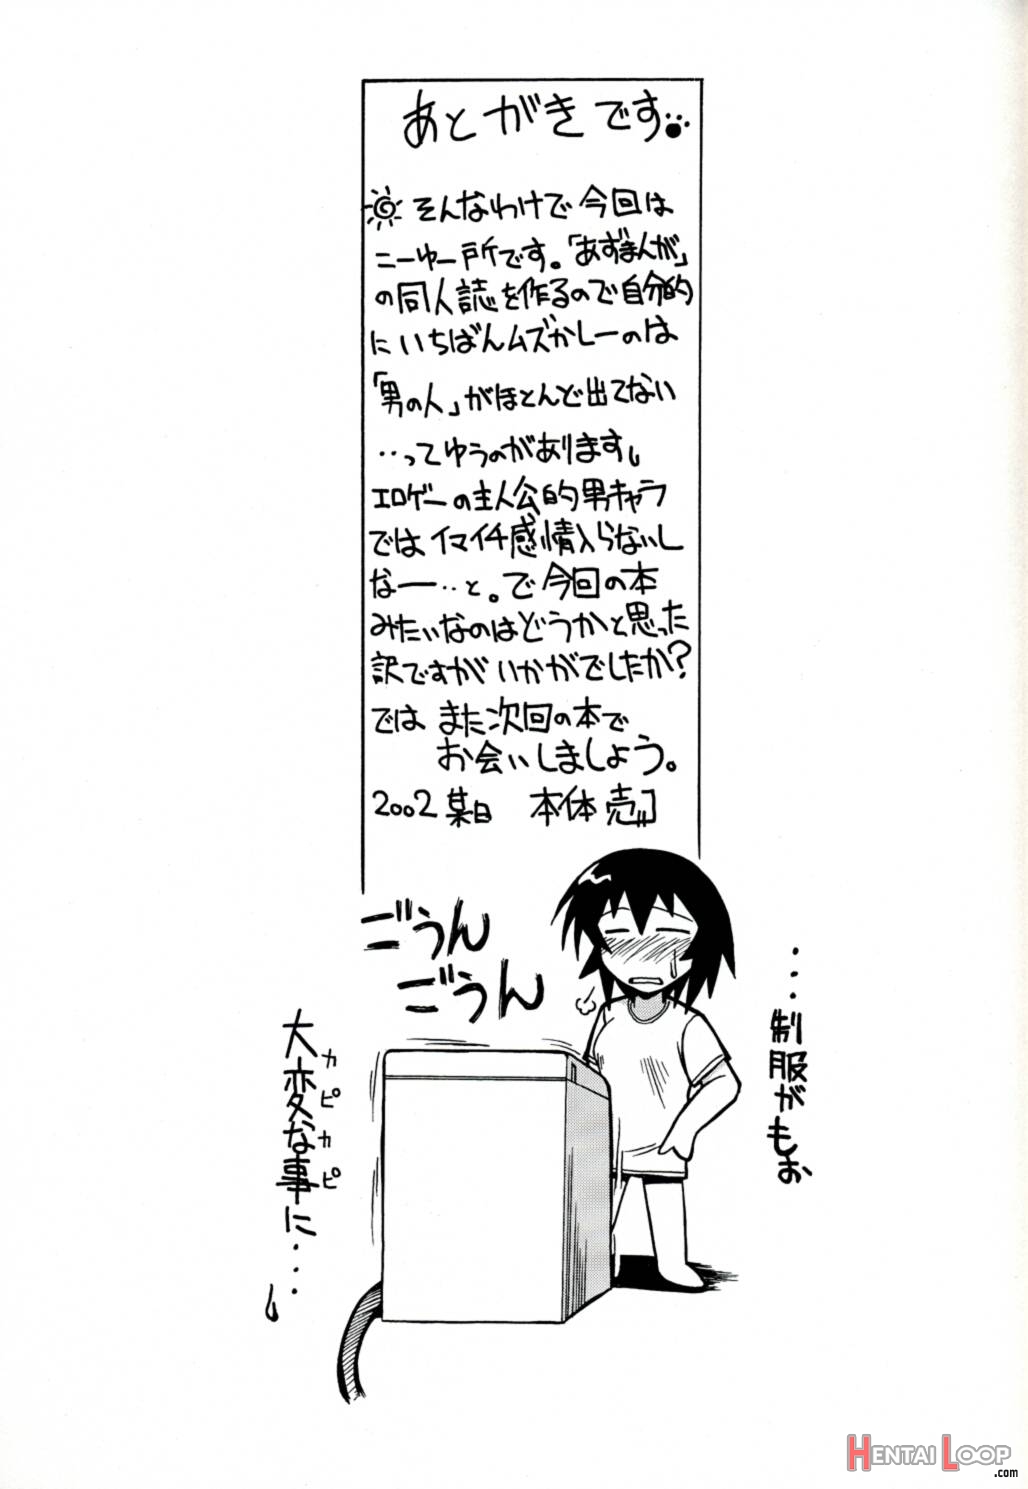 あとがきです
そんなわけで今回は
こーゆー所です。「あずまんが」
の同人誌を作るので自分的
にいちばんムズかしーのは
「男の人」がほとんど出てない
‥ってゆうのがあります。
エロゲーの主人公的男キャラ
ではイマイチ感情入らないし
なー‥と。で今回の本
みたいなのはどうかと思った
訳ですがいかがでしたか?
では また次回の本で
お会いしましょう。
2002 某日 本体 売
ごうん
ごうん
・・・制服がもお
大変な事に・・・
カピカピ
HENTAI LOOP
.com